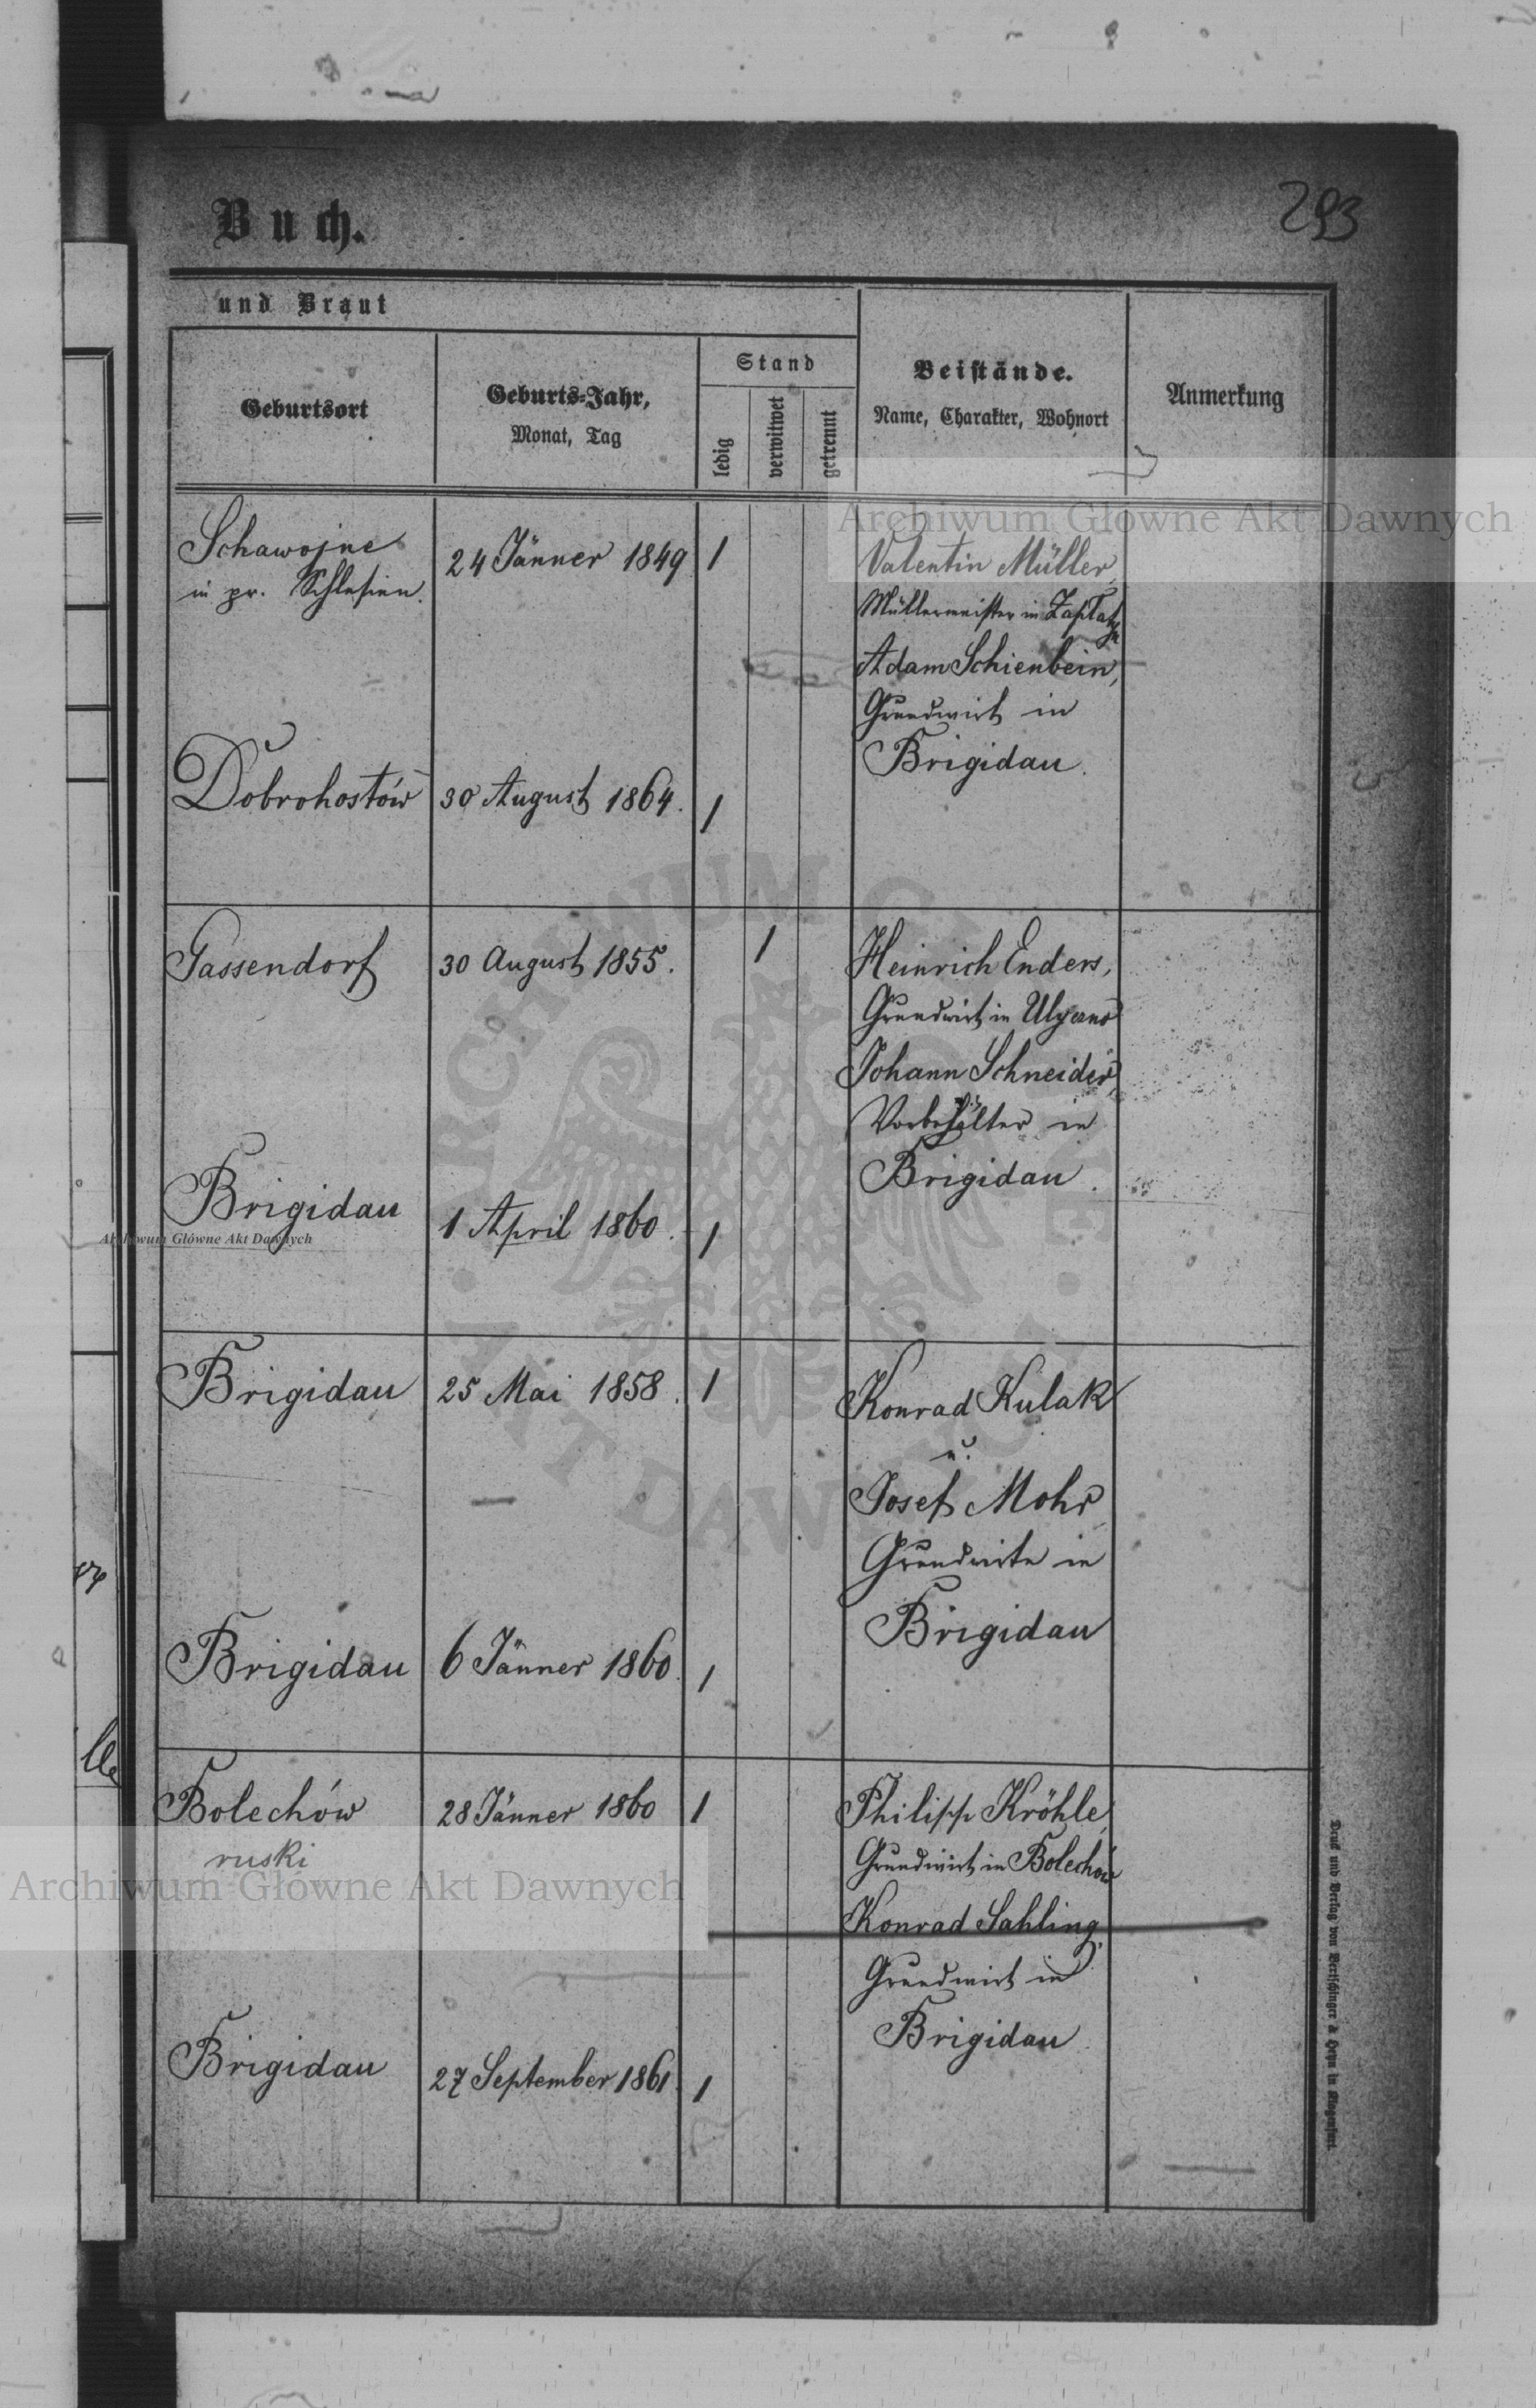 Buch.
293
und Braut
Geburtsort
Geburts-Jahr,
Monat, Tag
Stand
ledig
verwitwet
getrennt
Beistände.
Name, Charakter, Wohnort
Anmerkung
Schawoine
in pr. Schlesien.
24 Jänner 1849
1
Valentin Müller,
Müllermeister in
Adam Schienbein,
Grundwirt in
Brigidau.
Dobrohostów
30 August 1864.
1
Gassendorf
30 August 1855.
1
Heinrich Enders,
Grundwirt in
Johann Schneider,
Vorbehälter in
Brigidau.
Brigidau
1 April 1860.
1
Brigidau
25 Mai 1858.
1
Konrad Kulak
u.
Josef Mohr
Grundwirte in
Brigidau
Brigidau
6 Jänner 1860.
1
Bolechów
ruski
28 Jänner 1860
1
Philipp Kröhle,
Grundwirt in Bolechów
Konrad Sahling,
Grundwirt in
Brigidau.
Brigidau
27 September 1861.
1
Druck und Verlag von Bertschinger & Heyn in Klagenfurt.
Archiwum Główne Akt Dawnych
Archiwum Główne Akt Dawnych
Archiwum Główne Akt Dawnych
ARCHIWUM GŁÓWNE
AKT DAWNYCH